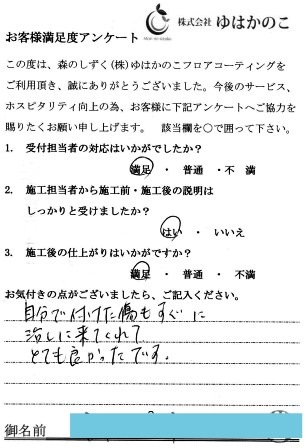 株式会社 ゆはかのこ
お客様満足度アンケート
この度は、森のしずく(株)ゆはかのこフロアコーティングを
ご利用頂き、誠にありがとうございました。今後のサービス、
ホスピタリティ向上の為、お客様に下記アンケートへご協力を
賜りたくお願い申し上げます。 該当欄を○で囲って下さい。
1. 受付担当者の対応はいかがでしたか？
満足 ・ 普通 ・ 不満
2. 施工担当者から施工前・施工後の説明は
しっかりと受けましたか？
はい ・ いいえ
3. 施工後の仕上がりはいかがですか？
満足 ・ 普通 ・ 不満
お気付きの点がございましたら、ご記入ください。
自分で付けた傷もすぐに
治しに来てくれて
とても良かったです。
御名前